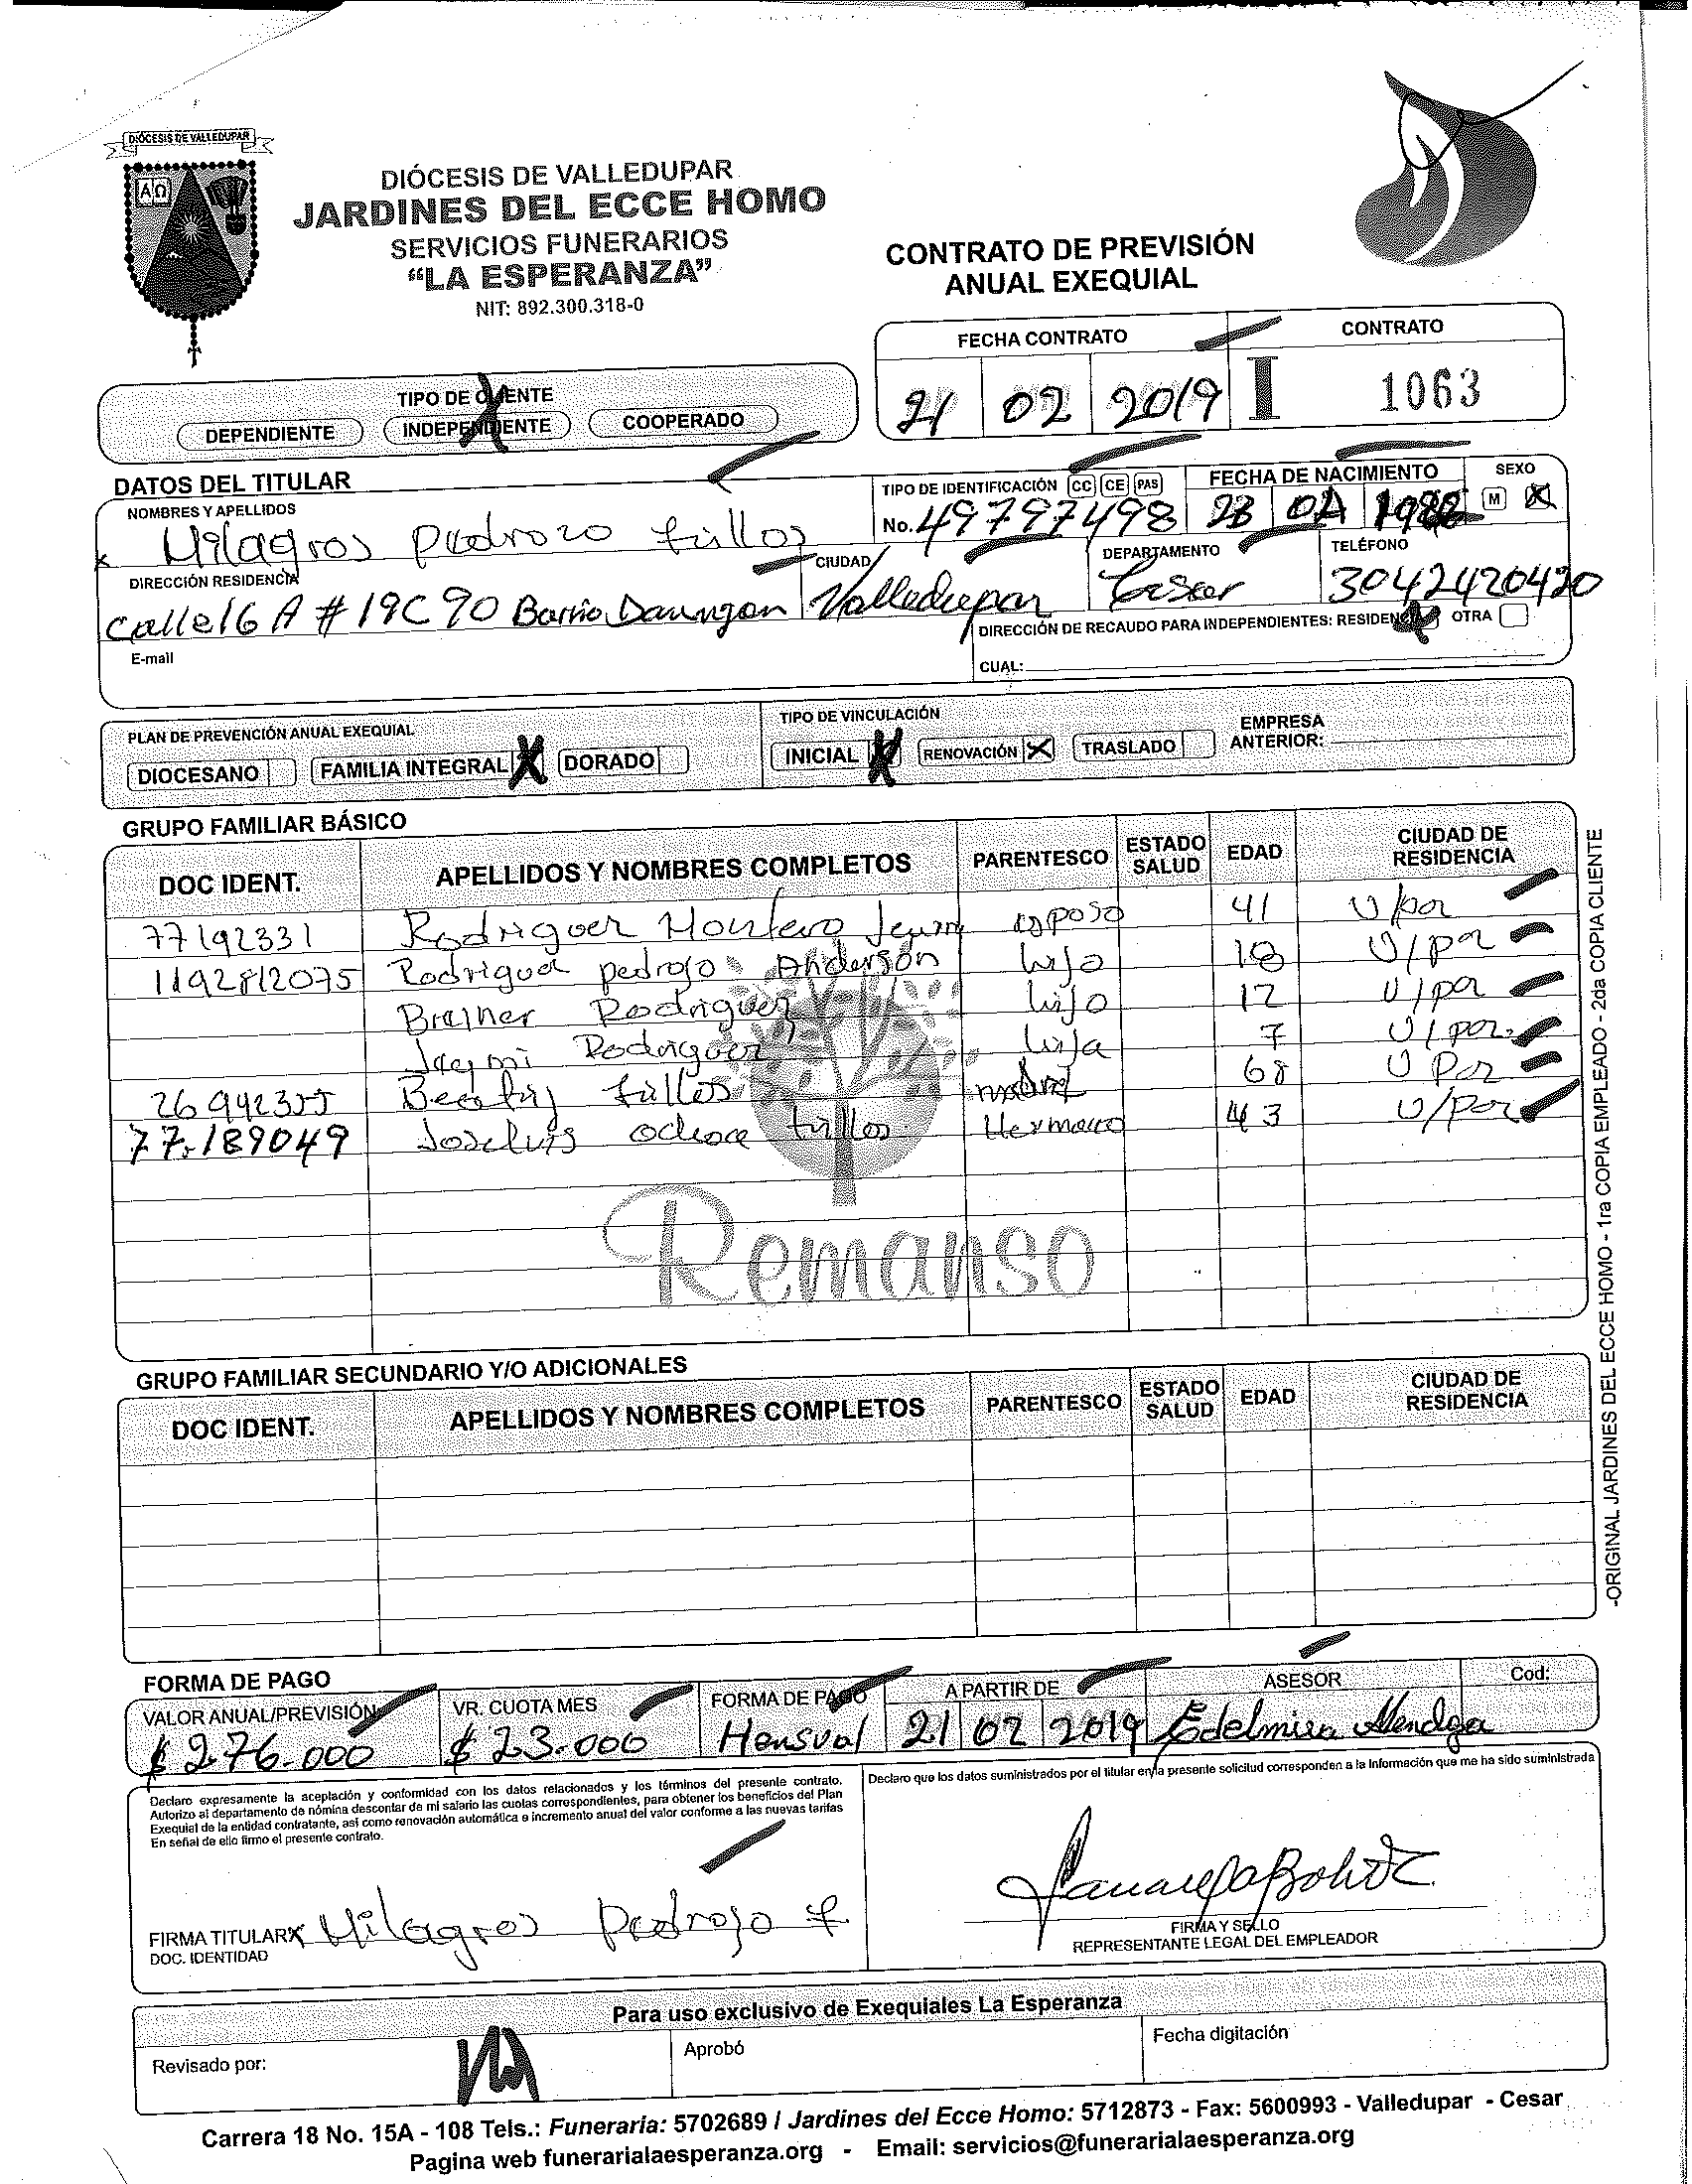 DIÓCESIS DE VALLEDUPAR
DIÓCESIS DE VALLEDUPAR
JARDINES DEL ECCE HOMO
SERVICIOS FUNERARIOS
“LA ESPERANZA”
NIT: 892.300.318-0
CONTRATO DE PREVISIÓN
ANUAL EXEQUIAL
FECHA CONTRATO CONTRATO
21 02 2019 I 1063
TIPO DE CLIENTE
DEPENDIENTE INDEPENDIENTE X COOPERADO
DATOS DEL TITULAR
TIPO DE IDENTIFICACIÓN CC CE PAS FECHA DE NACIMIENTO SEXO
NOMBRES Y APELLIDOS
No. 49797498 23 M X
x Milagros pedrozo tullos
DIRECCIÓN RESIDENCIA CIUDAD DEPARTAMENTO TELÉFONO
calle 16 A # 19C 90 Barrio Valledupar Cesar 3042420420
DIRECCIÓN DE RECAUDO PARA INDEPENDIENTES: RESIDENCIA X OTRA
E-mail
CUAL:
PLAN DE PREVENCIÓN ANUAL EXEQUIAL TIPO DE VINCULACIÓN EMPRESA
DIOCESANO FAMILIA INTEGRAL X DORADO INICIAL X RENOVACIÓN X TRASLADO ANTERIOR:
GRUPO FAMILIAR BÁSICO
DOC IDENT. APELLIDOS Y NOMBRES COMPLETOS PARENTESCO ESTADO SALUD EDAD CIUDAD DE RESIDENCIA
77192331 Rodriguez Montero esposo 41 V/par
1192812075 Rodriguez pedrozo Anderson hijo 18 V/par
Brainer Rodriguez hijo 12 V/par
Rodriguez hija 7 V/par
26942355 Beatriz tullos madre 68 V Par
77.189049 Jose luis ochoa tullos Hermano 43 V/par
Remanso
GRUPO FAMILIAR SECUNDARIO Y/O ADICIONALES
DOC IDENT. APELLIDOS Y NOMBRES COMPLETOS PARENTESCO ESTADO SALUD EDAD CIUDAD DE RESIDENCIA
-ORIGINAL JARDINES DEL ECCE HOMO - 1ra COPIA EMPLEADO - 2da COPIA CLIENTE
FORMA DE PAGO
VALOR ANUAL/PREVISIÓN VR. CUOTA MES FORMA DE PAGO A PARTIR DE ASESOR Cod:
$ 276.000 $ 23.000 Mensual 21 02 2019 Edelmira Mendoza
Declaro expresamente la aceptación y conformidad con los datos relacionados y los términos del presente contrato.
Autorizo al departamento de nómina descontar de mi salario las cuotas correspondientes, para obtener los beneficios del Plan
Exequial de la entidad contratante, así como renovación automática e incremento anual del valor conforme a las nuevas tarifas
En señal de ello firmo el presente contrato.
Declaro que los datos suministrados por el titular en la presente solicitud corresponden a la información que me ha sido suministrada
FIRMA TITULAR x Milagros Pedrozo t.
DOC. IDENTIDAD
FIRMA Y SELLO
REPRESENTANTE LEGAL DEL EMPLEADOR
Para uso exclusivo de Exequiales La Esperanza
Revisado por: Aprobó Fecha digitación
Carrera 18 No. 15A - 108 Tels.: Funeraria: 5702689 / Jardines del Ecce Homo: 5712873 - Fax: 5600993 - Valledupar - Cesar
Pagina web funerarialaesperanza.org - Email: servicios@funerarialaesperanza.org